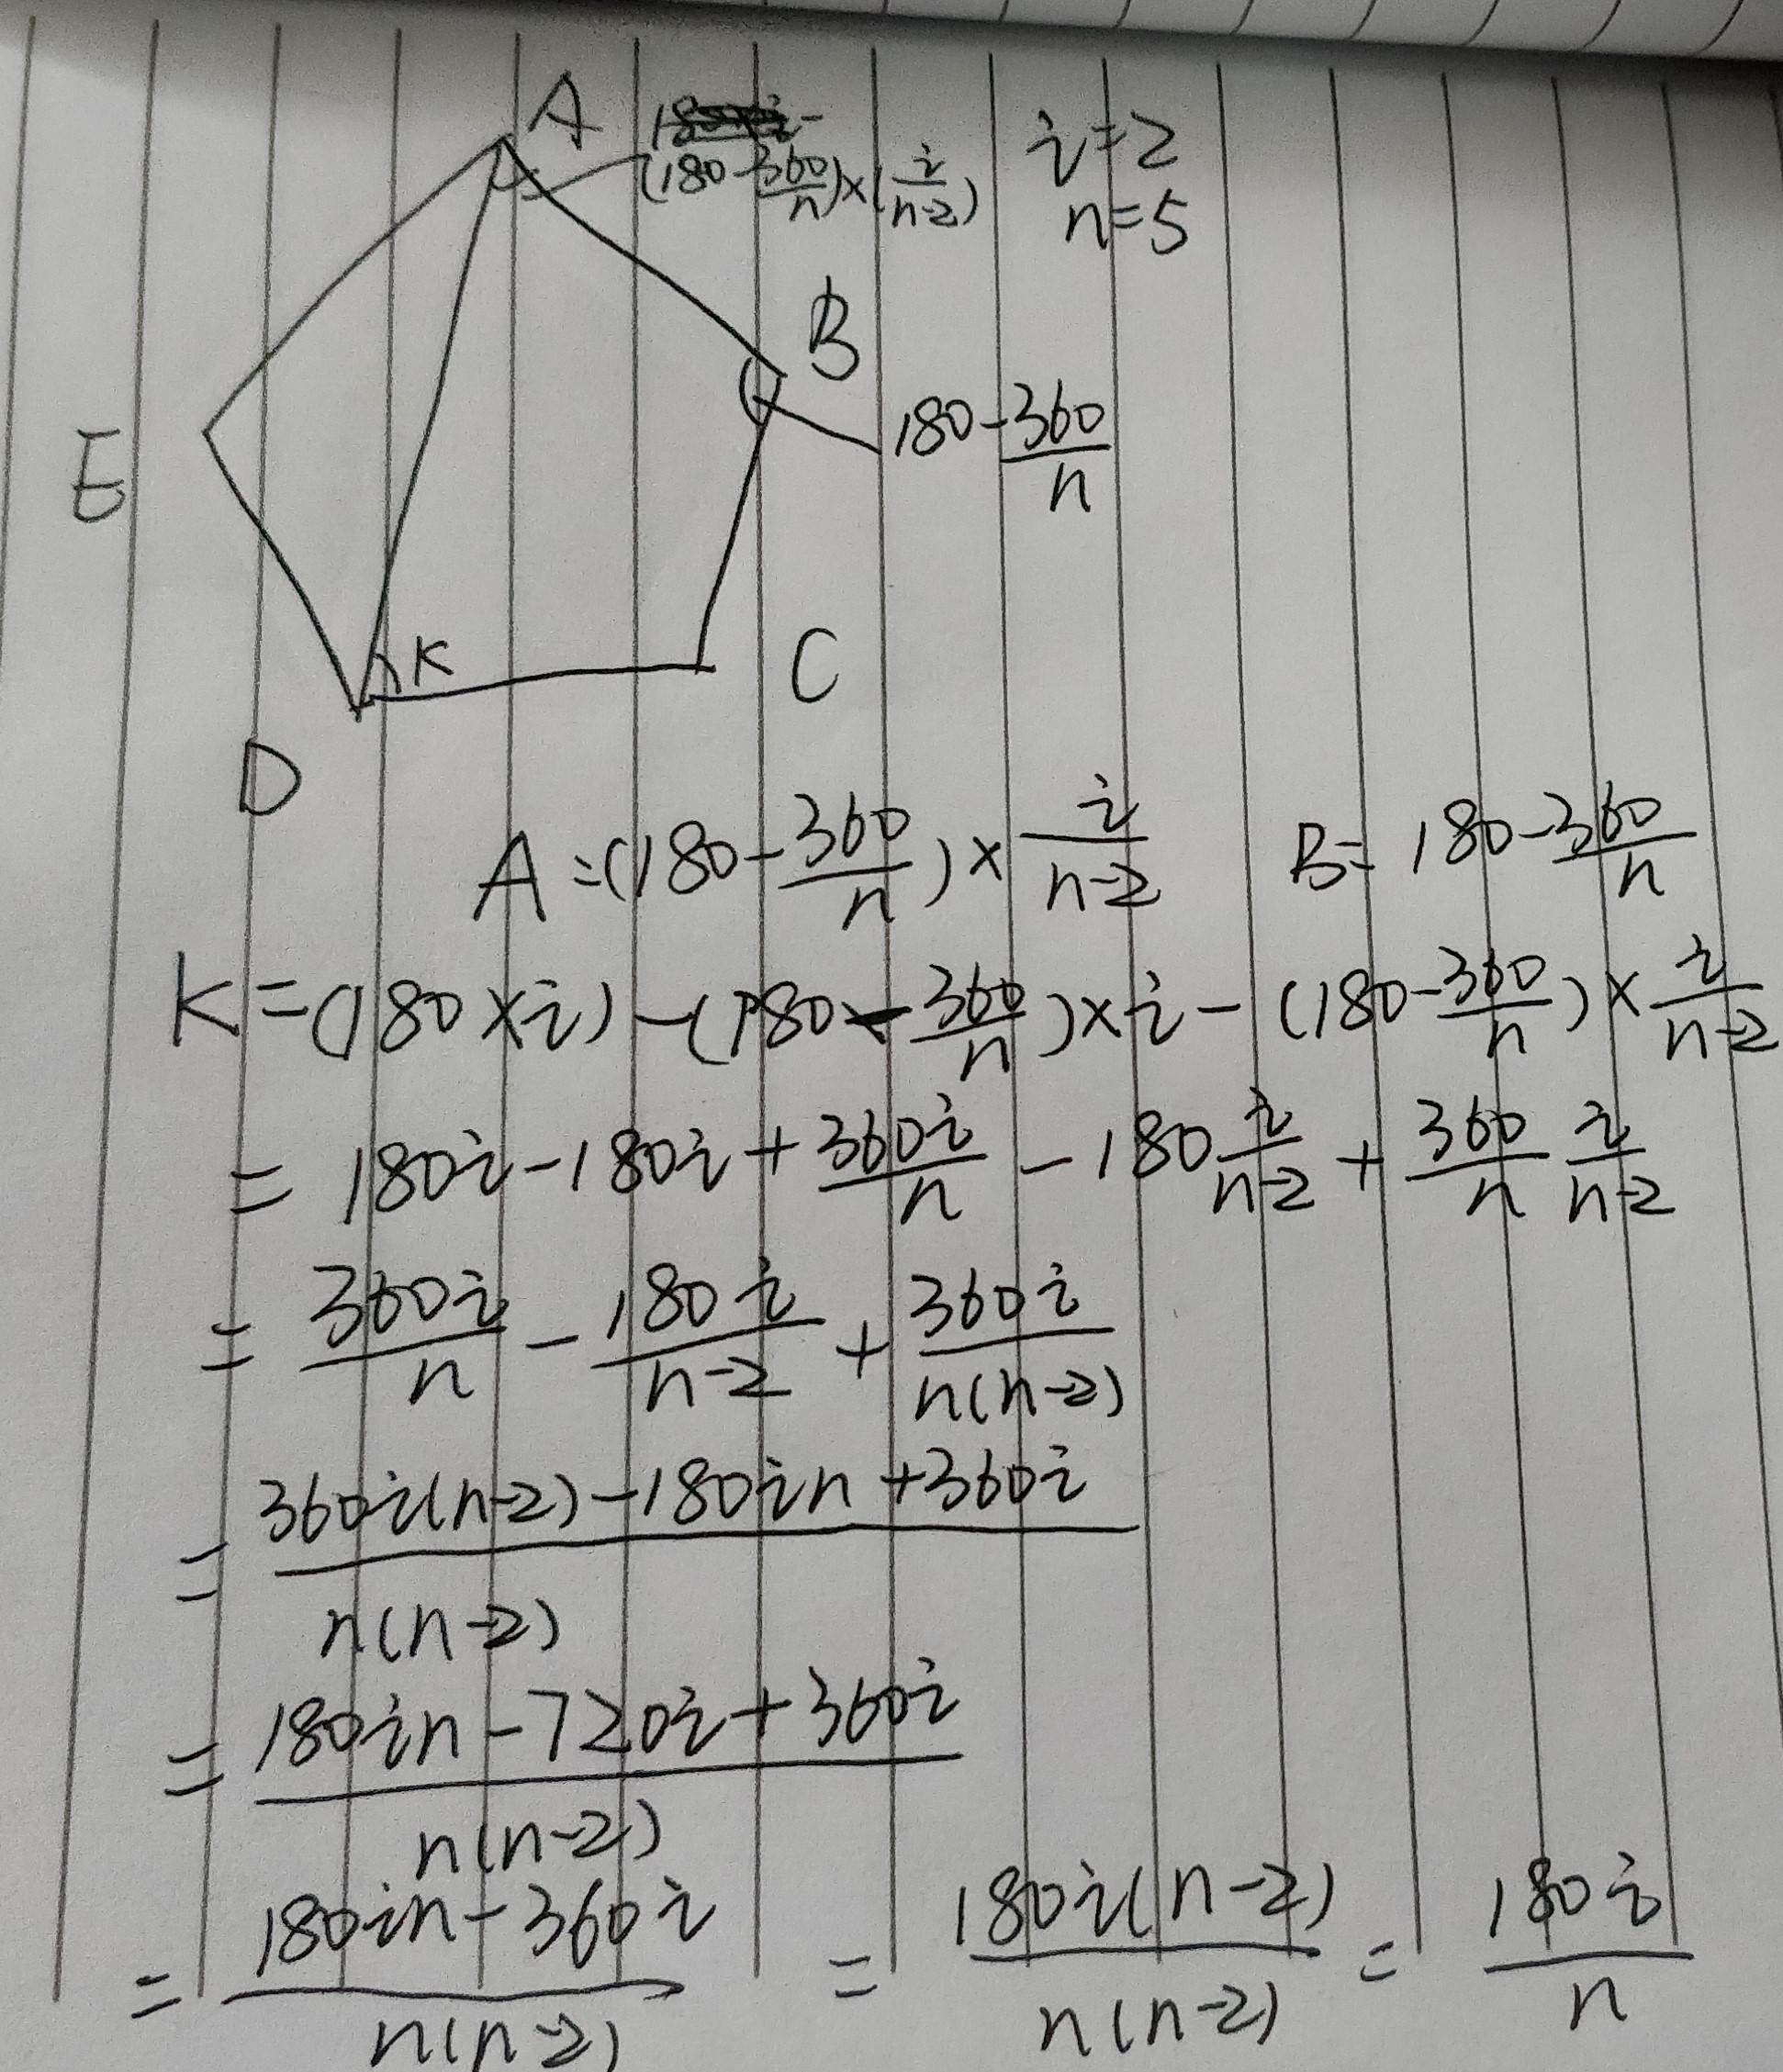 A
(180-360/n)×(i/n-2)
i=2
n=5
B
180-360/n
E
K
C
D
A=(180-360/n)×i/n-2 B=180-360/n
K=(180×i)-(180-360/n)×i-(180-360/n)×i/n-2
=180i-180i+360i/n-180i/n-2+360/n i/n-2
=360i/n-180i/n-2+360i/n(n-2)
=360i(n-2)-180in+360i/n(n-2)
=180in-720i+360i/n(n-2)
=180in-360i/n(n-2)=180i(n-2)/n(n-2)=180i/n